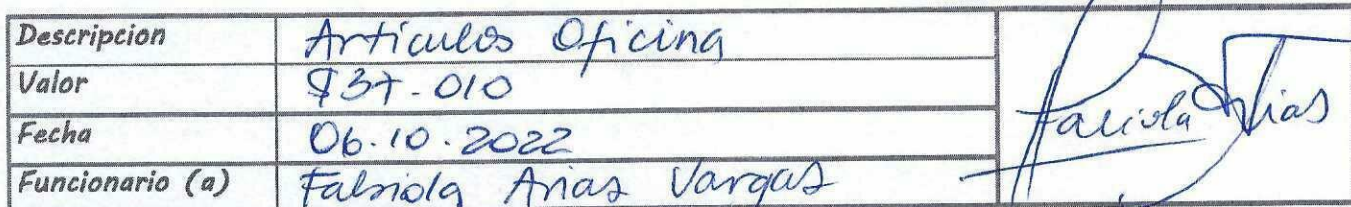 Descripcion Articulos Oficina
Valor $37.010
Fecha 06.10.2022
Funcionario (a) Fabiola Arias Vargas
Fabiola Arias